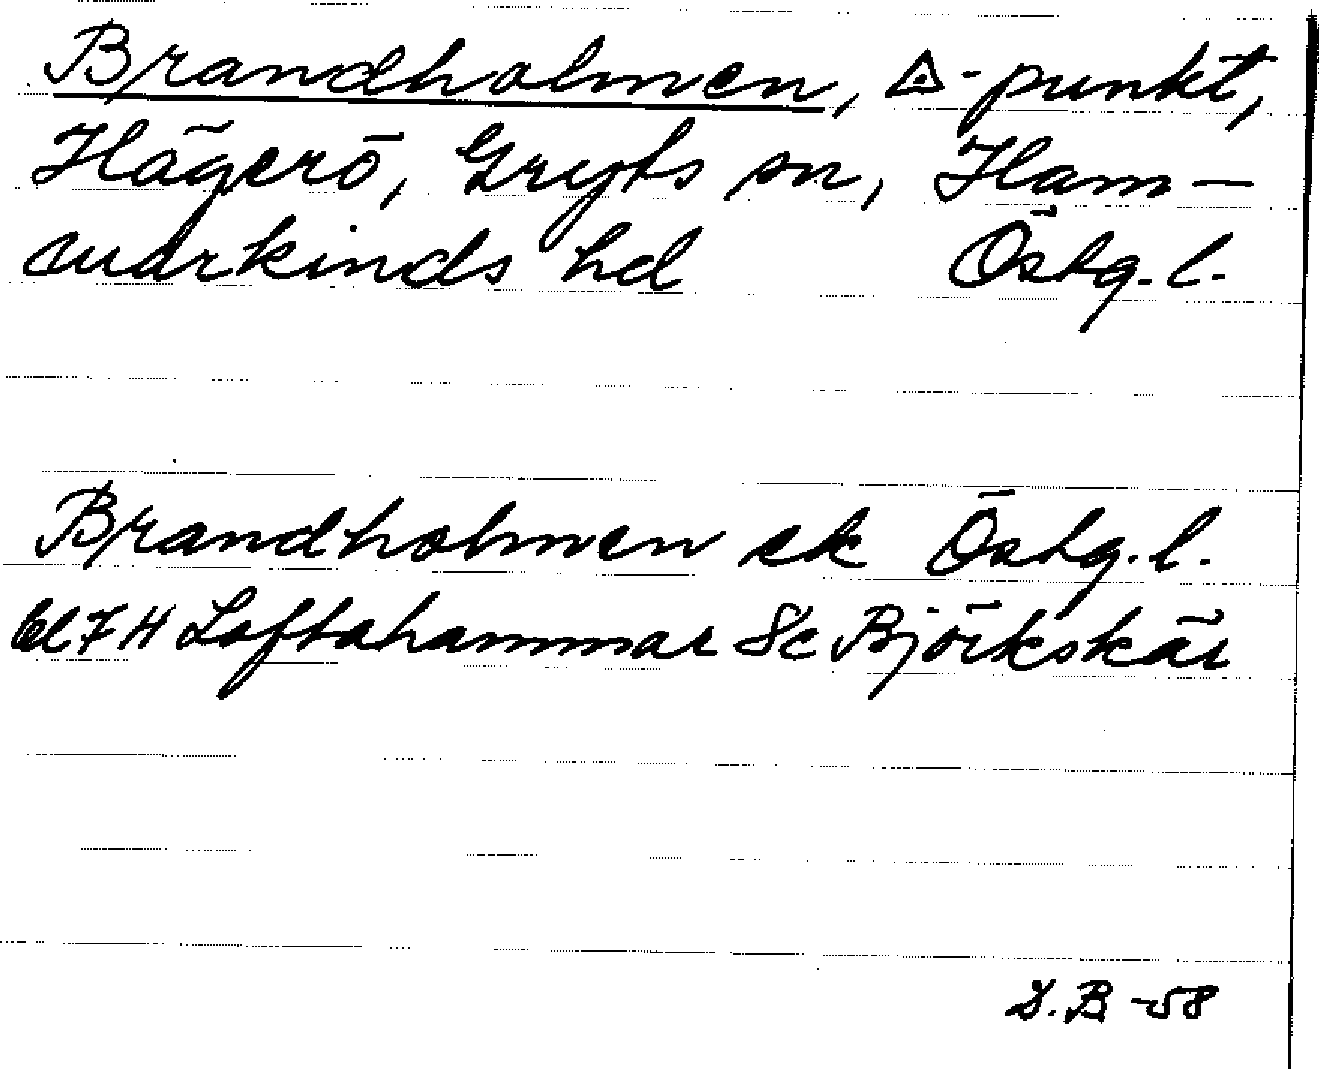 Brandholmen, △-punkt,
Hägerö, Gryts sn, Ham-
markinds hd Östg. l.
Brandholmen ek Östg. l.
7H Loftahammar Sc Björkskär
D.B -58